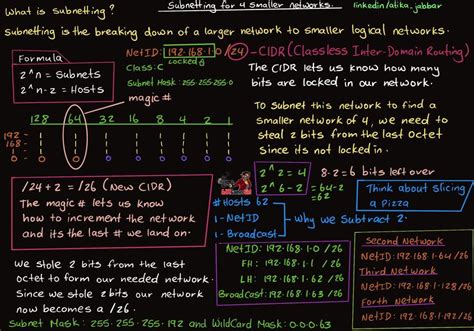 What is subnetting?
Subnetting for 4 smaller networks.
linkedin/atika.jabbar
Subnetting is the breaking down of a larger network to smaller logical networks.
Formula
2^n = Subnets
2^n-2 = Hosts
NetID: 192.168.1.0 /24 - CIDR (Classless Inter-Domain Routing)
Class: C
Locked
Subnet Mask: 255.255.255.0
magic #
The CIDR lets us know how many
bits are locked in our network.
128 64 32 16 8 4 2 1
192 -
168 -
1 -
0 0 0 0 0 0 0 0
To subnet this network to find a
smaller network of 4, we need to
steal 2 bits from the last octet
since its not locked in.
/24 + 2 = /26 (New CIDR)
The magic # lets us know
how to increment the network
and its the last # we land on.
2^2 = 4
2^6-2 = 64-2
=62
8-2=6 bits left over
Think about slicing
a Pizza
# Hosts 62
1 - NetID
1 - Broadcast
Why we Subtract 2.
We stole 2 bits from the last
octet to form our needed network.
Since we stole 2 bits our network
now becomes a /26.
NetID: 192.168.1.0 /26
FH: 192.168.1.1 /26
LH: 192.168.1.62 /26
Broadcast: 192.168.1.63 /26
Second Network
NetID: 192.168.1.64 /26
Third Network
NetID: 192.168.1.128 /26
Forth Network
NetID: 192.168.1.192 /26
Subnet Mask: 255.255.255.192 and WildCard Mask: 0.0.0.63